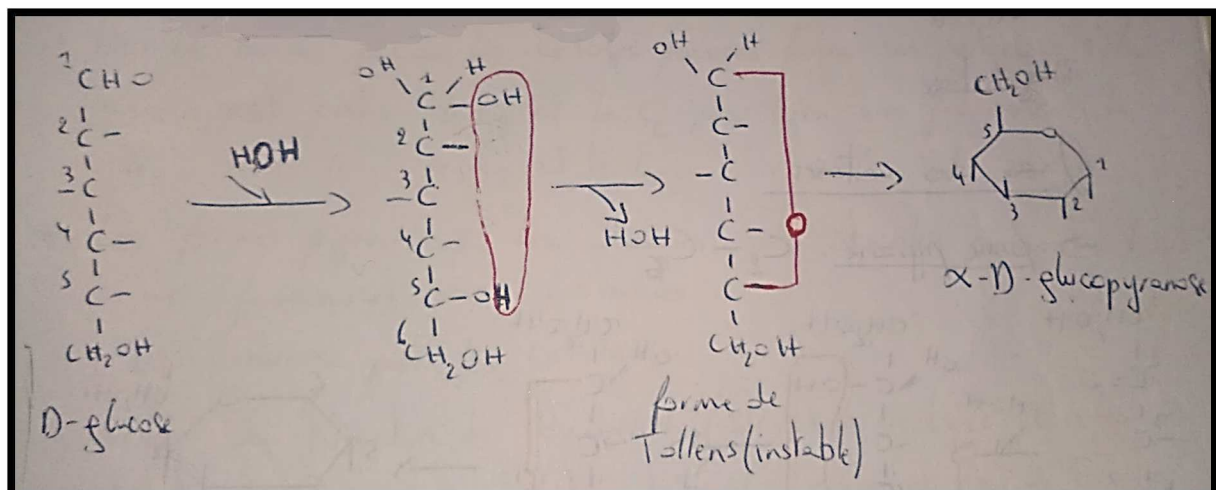 ¹CHO
2 C –
– 3 C
4 C –
5 C –
CH₂OH
D-glucose
HOH
OH H
1 C – OH
2 C –
– 3 C
4 C –
5 C – OH
6 CH₂OH
HOH
OH H
C
C –
– C
C – O
C
CH₂OH
forme de
Tollens (instable)
CH₂OH
5 O
4 1
3 2
α-D-glucopyranose